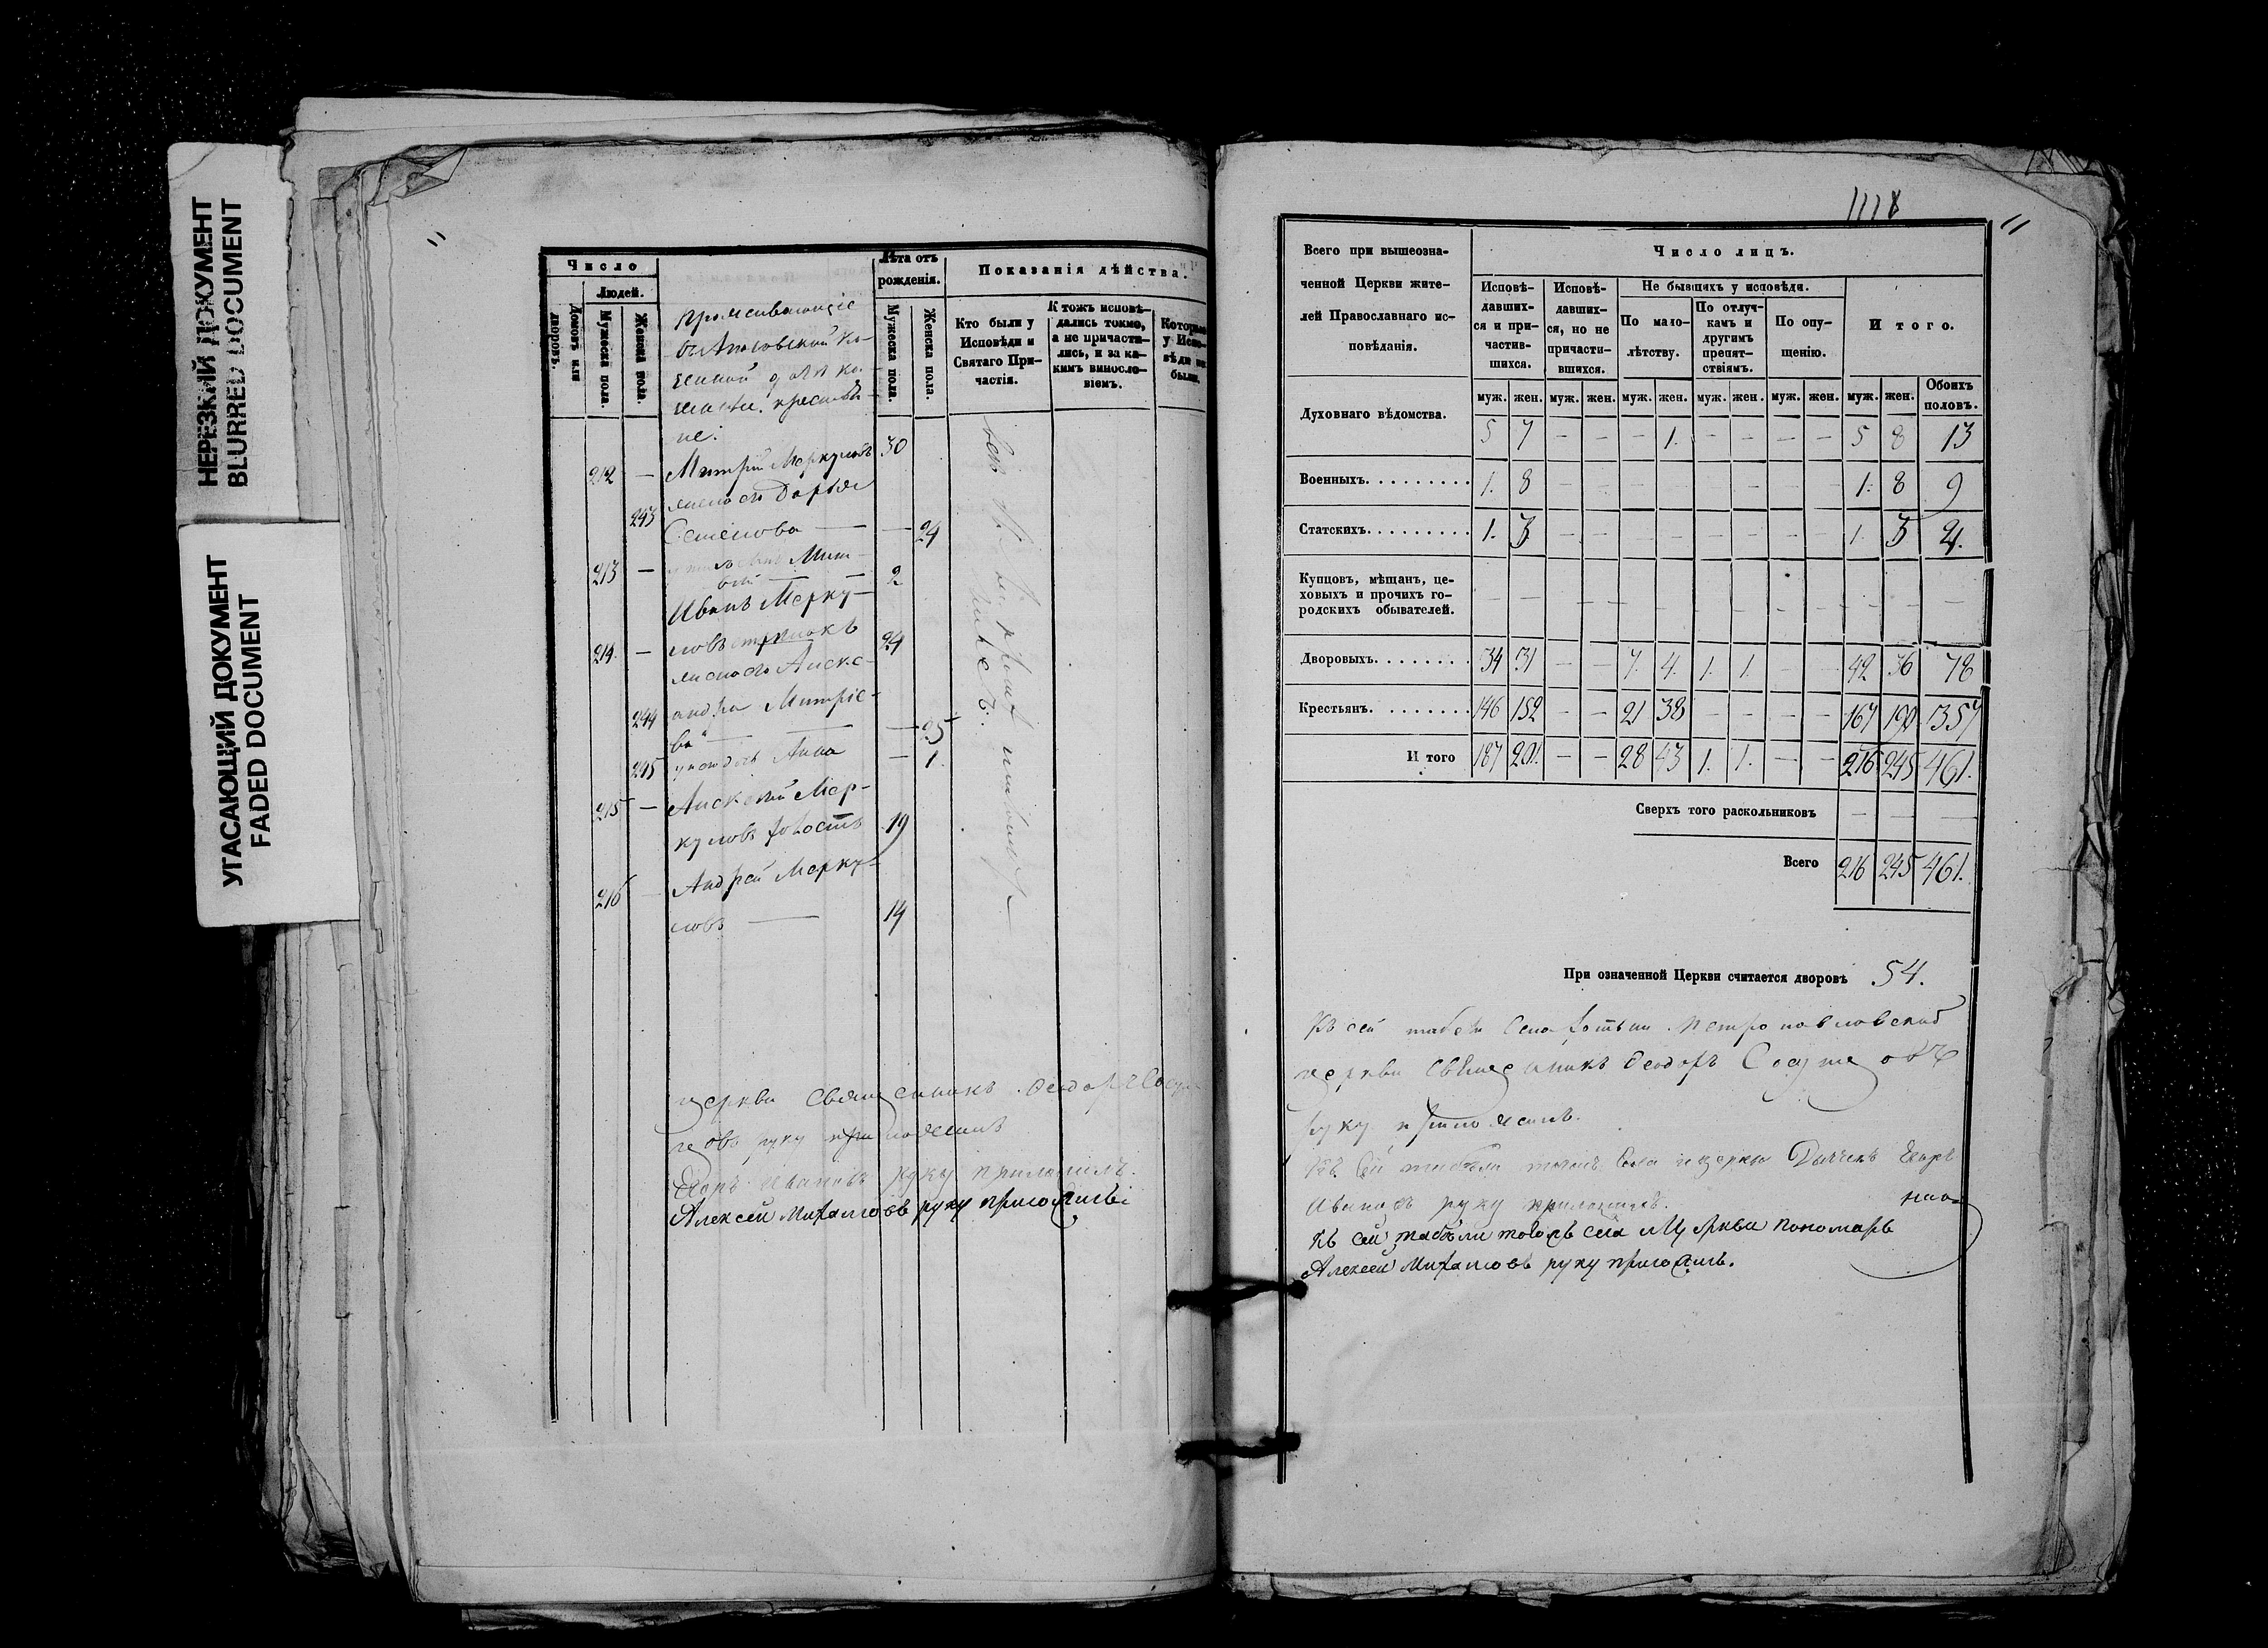 НЕРЕЗКИЙ ДОКУМЕНТ
BLURRED DOCUMENT
УГАСАЮЩИЙ ДОКУМЕНТ
FADED DOCUMENT
Число
Людей.
Домовъ или дворовъ.
Мужеска пола.
Женска пола.
Лѣта отъ рожденія.
Мужеска пола.
Женска пола.
Показанія дѣйства.
Кто были у Исповѣди и Святаго Причастія.
К тожъ исповѣдались токмо, а не причастились, и за какимъ винословіемъ.
Которые у Исповѣди не были.
212 — Митрій Меркуловъ 30
243 жена его Дарья
Семенова — — 24
213 — Мит-
2
Иванъ Мерку-
214. — ловъ 24
жена его Алекс-
244 андра Митріе-
ва — — 25
245 Анна — 1.
215 — Алексѣй Мер-
куловъ холостъ 19
216 — Андрей Мерку-
ловъ — 14
церкви Священникъ Феодоръ
руку приложилъ
Егоръ Ивановъ руку приложилъ.
Алексей Михайловъ руку приложилъ
1118
Всего при вышеозначенной Церкви жителей Православнаго исповѣданія.
Число лицъ.
Исповѣдавшихся и причастившихся.
Исповѣдавшихся, но не причастившихся.
Не бывшихъ у исповѣди.
По малолѣтству.
По отлучкамъ и другимъ препятствіямъ.
По опущенію.
Итого.
муж. жен. муж. жен. муж. жен. муж. жен. муж. жен. муж. жен. Обоихъ половъ.
Духовнаго вѣдомства. 5 7 — — — 1. — — — — 5 8 13
Военныхъ. 1. 8 — — — — — — — — 1. 8 9
Статскихъ. 1. 3 — — — — — — — — 1. 3 4.
Купцовъ, мѣщанъ, цеховыхъ и прочихъ городскихъ обывателей. — — — — — — — — — — — — —
Дворовыхъ. 34 31 — — 7. 4. 1. 1. — — 42 36 78
Крестьянъ. 146 152 — — 21 38 — — — — 167 190 357
Итого 187 201. — — 28 43 1. 1. — — 216 245 461.
Сверхъ того раскольниковъ — — —
Всего 216 245 461.
При означенной Церкви считается дворовъ 54.
Къ сей табели села Петропавловской
церкви Священникъ Феодоръ
руку приложилъ.
Къ сей табели тогожъ села и церкви Дьячекъ Егоръ
Ивановъ руку приложилъ.
Къ сей табели тогожъ села и Церкви пономарь
Алексей Михайловъ руку приложилъ.